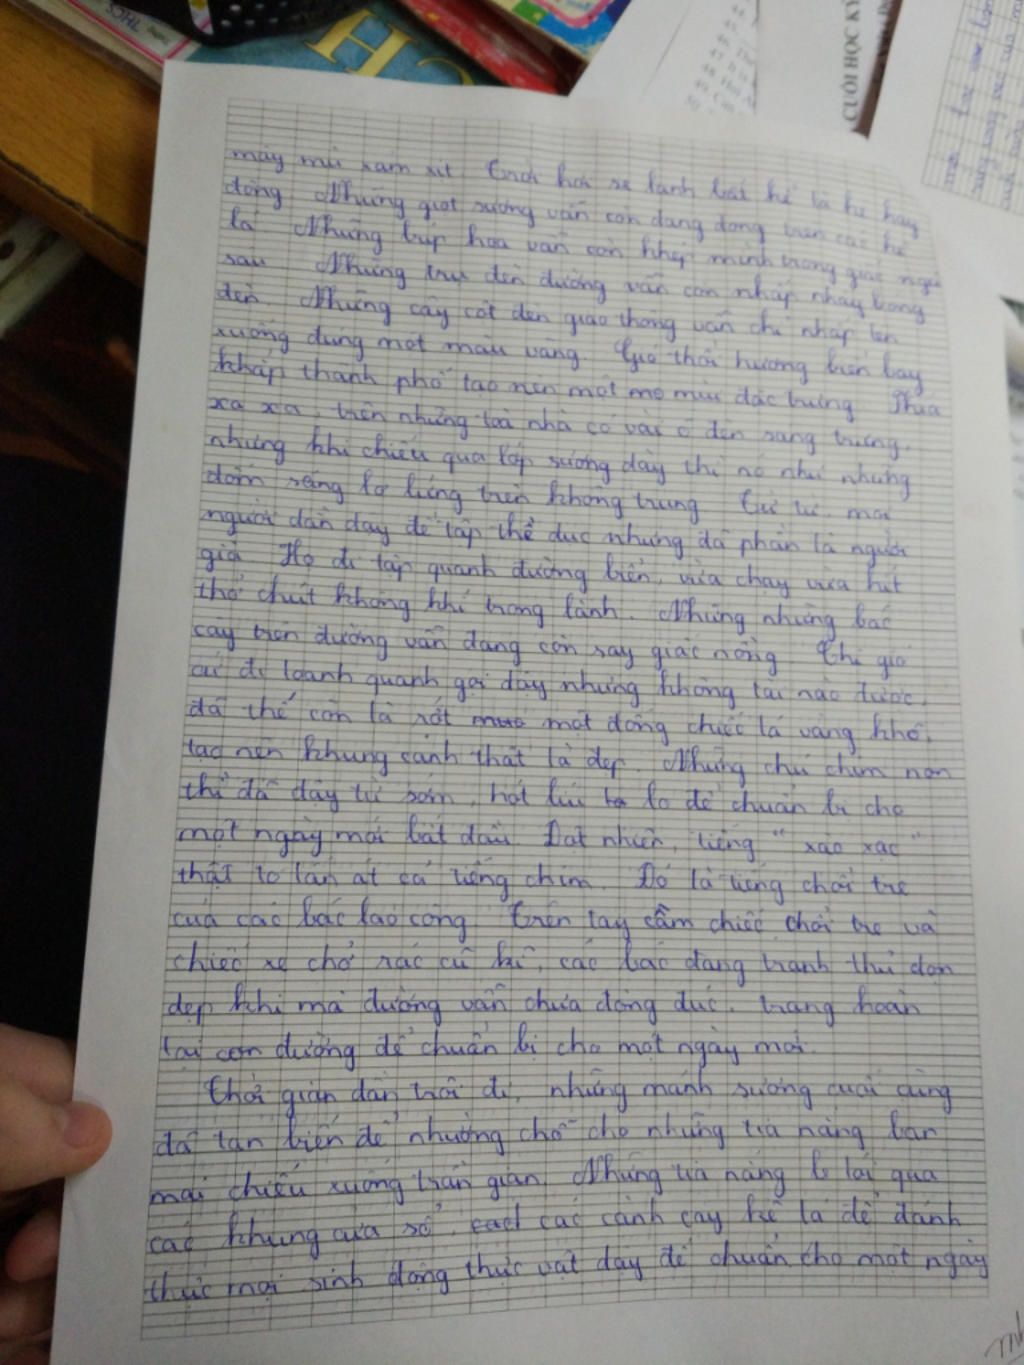 THCS
H
44.
45.
46. Th
47. It is
48. Hoi A
49. Can
50.
CUỐI HỌC KỲ
mây mù xám xịt. Trời hơi se lạnh bất kể là hè hay
đông. Những giọt sương vẫn còn đang đọng trên các kẽ
lá. Những búp hoa vẫn còn khép mình trong giấc ngủ
sâu. Những trụ đèn đường vẫn còn nhấp nháy trong
đèn. Những cây cột đèn giao thông vẫn chỉ nhấp lên
xuống đúng một màu vàng. Gió thổi hương biển bay
khắp thành phố tạo nên một mùi đặc trưng. Phía
xa xa, trên những toà nhà có vài ô đèn sáng trưng,
nhưng khi chiếu qua lớp sương dày thì nó như những
đốm sáng lơ lửng trên không trung. Từ từ, mọi
người dần dậy để tập thể dục nhưng đa phần là người
già. Họ đi tập quanh đường biển, vừa chạy vừa hít
thở chút không khí trong lành. Nhưng những bác
cây trên đường vẫn đang còn say giấc nồng. Chị gió
cứ đi loanh quanh gọi dậy nhưng không tài nào được,
đã thế còn là rớt một đống chiếc lá vàng khô,
tạo nên khung cảnh thật là đẹp. Những chú chim non
thì đã dậy từ sớm, hót líu lo để chuẩn bị cho
một ngày mới bắt đầu. Đột nhiên, tiếng "xào xạc"
thật to lấn át cả tiếng chim. Đó là tiếng chổi tre
của các bác lao công. Trên tay cầm chiếc chổi tre và
chiếc xe chở rác cũ kĩ, các bác đang tranh thủ dọn
dẹp khi mà đường vẫn chưa đông đúc, trang hoàn
lại con đường để chuẩn bị cho một ngày mới.
Thời gian dần trôi đi, những mảnh sương cuối cùng
đã tan biến để nhường chỗ cho những tia nắng ban
mai chiếu xuống trần gian. Những tia nắng len lỏi qua
các khung cửa sổ, các cành cây kẽ lá để đánh
thức mọi sinh động thực vật dậy để chuẩn cho một ngày